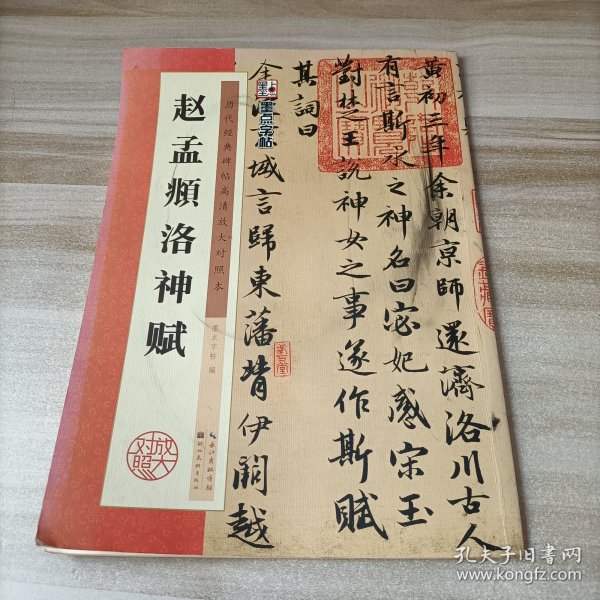 赵孟頫洛神赋
历代经典碑帖高清放大对照本
墨点字帖 编
放大对照
长江出版传媒
湖北美术出版社
墨点字帖
黄初三年余朝京師還濟洛川古人
有言斯水之神名曰宓妃感宋玉
對楚王說神女之事遂作斯賦
其詞曰
余
域言歸東藩背伊闕越
孔夫子旧书网
www.kongfz.com